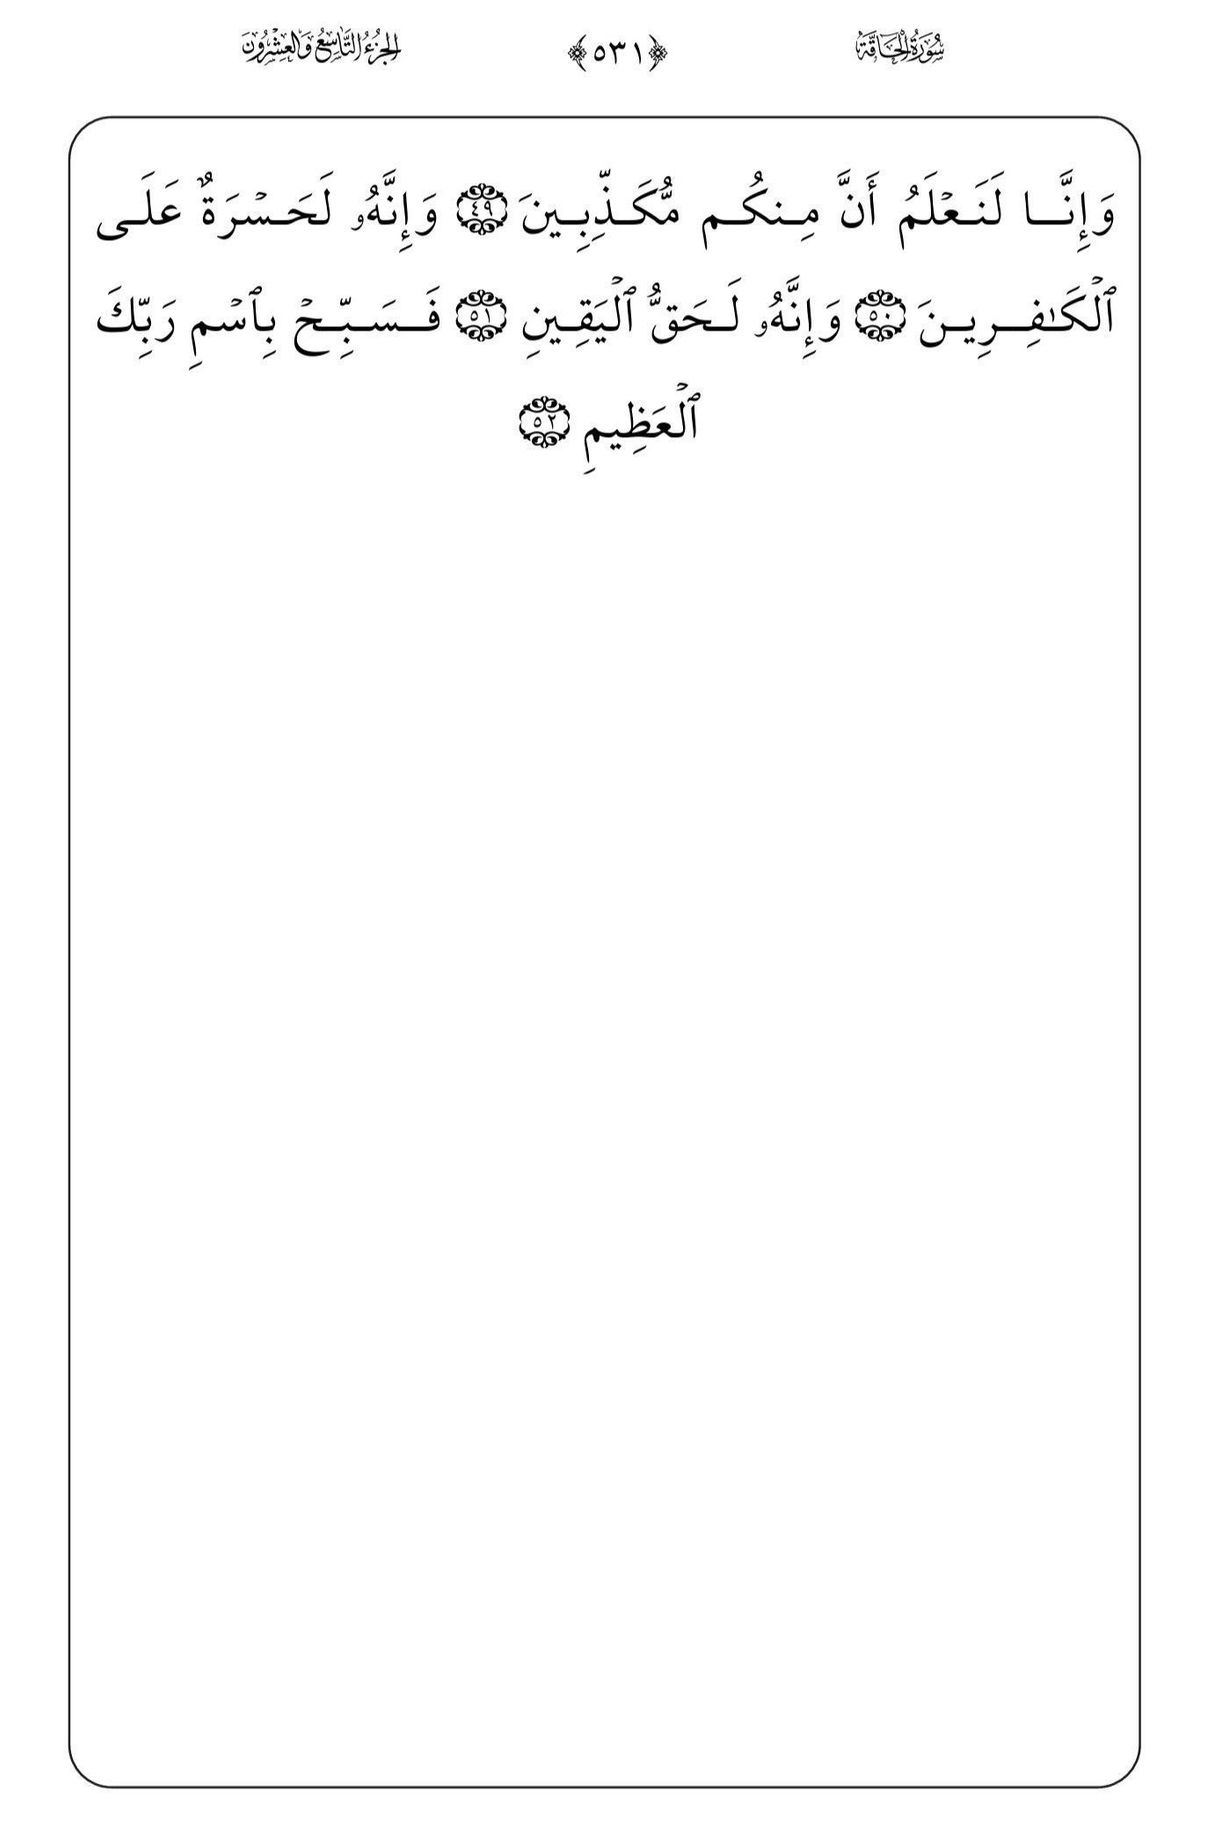 سُورَةُ الحَاقَّة ﴿٥٣١﴾ الجُزْءُ التَّاسِعُ وَالعِشْرُونَ
وَإِنَّا لَنَعۡلَمُ أَنَّ مِنكُم مُّكَذِّبِينَ ٤٩ وَإِنَّهُۥ لَحَسۡرَةٌ عَلَى
ٱلۡكَٰفِرِينَ ٥٠ وَإِنَّهُۥ لَحَقُّ ٱلۡيَقِينِ ٥١ فَسَبِّحۡ بِٱسۡمِ رَبِّكَ
ٱلۡعَظِيمِ ٥٢